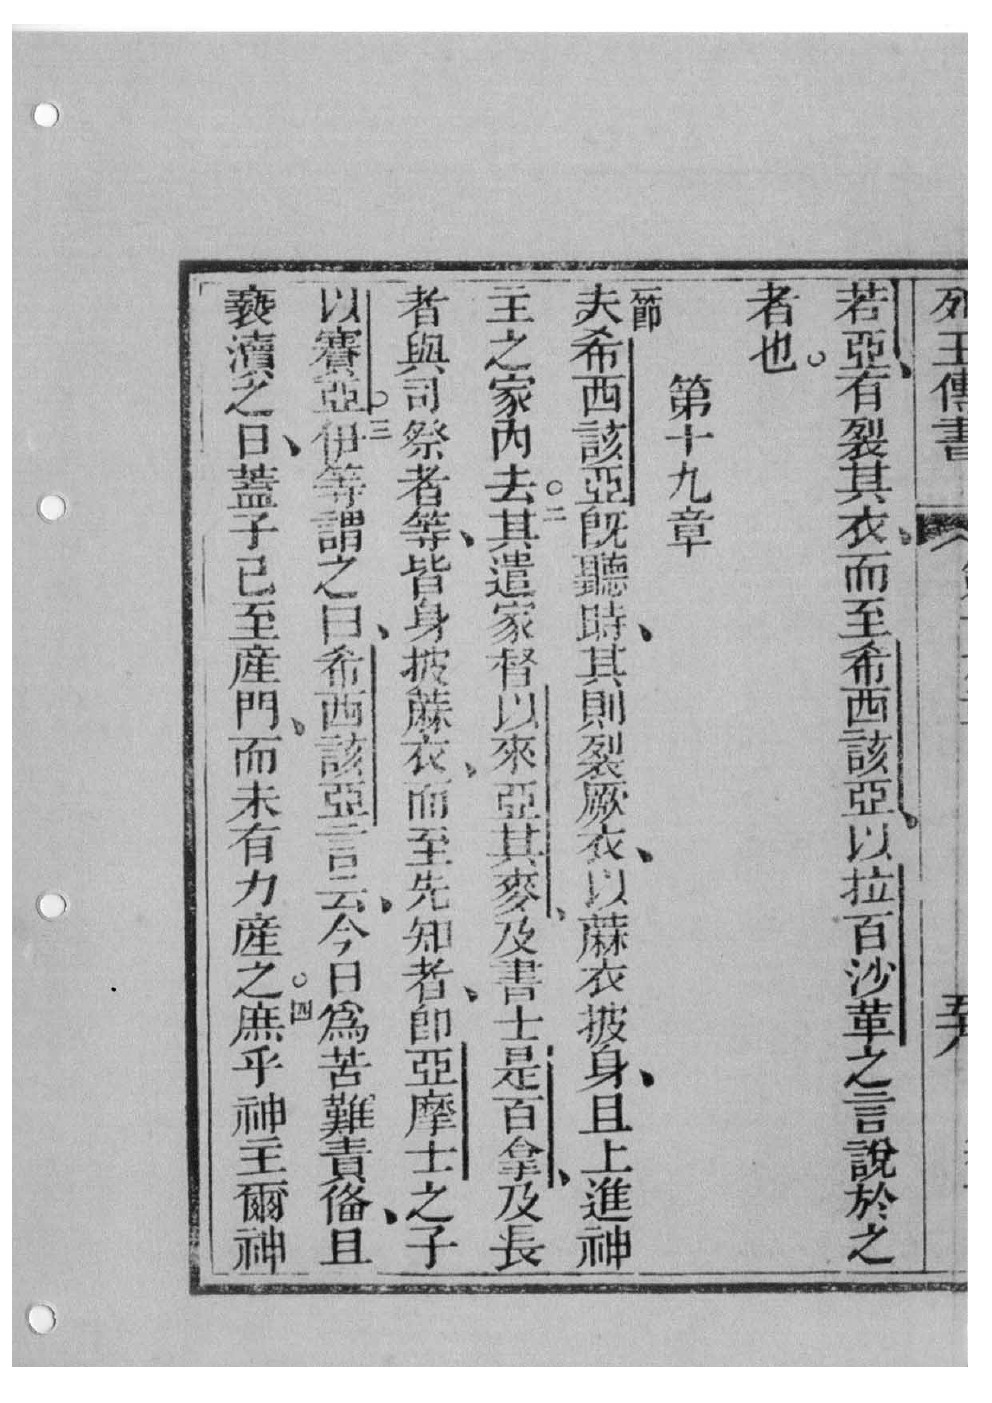 列王傳書
若亞、有裂其衣、而至希西該亞、以拉百沙革之言說於之
者也。
第十九章
一節夫希西該亞旣聽時、其則裂厥衣、以蔴衣披身、且上進神
主之家內去。二其遣家督以來亞其麥、及書士是百拿、及長
者與司祭者等、皆身披蔴衣、而至先知者、卽亞摩士之子
以賽亞。三伊等謂之曰、希西該亞言云、今日爲苦難責俻、且
褻瀆之日、蓋子已至産門、而未有力産之。四庶乎神主爾神